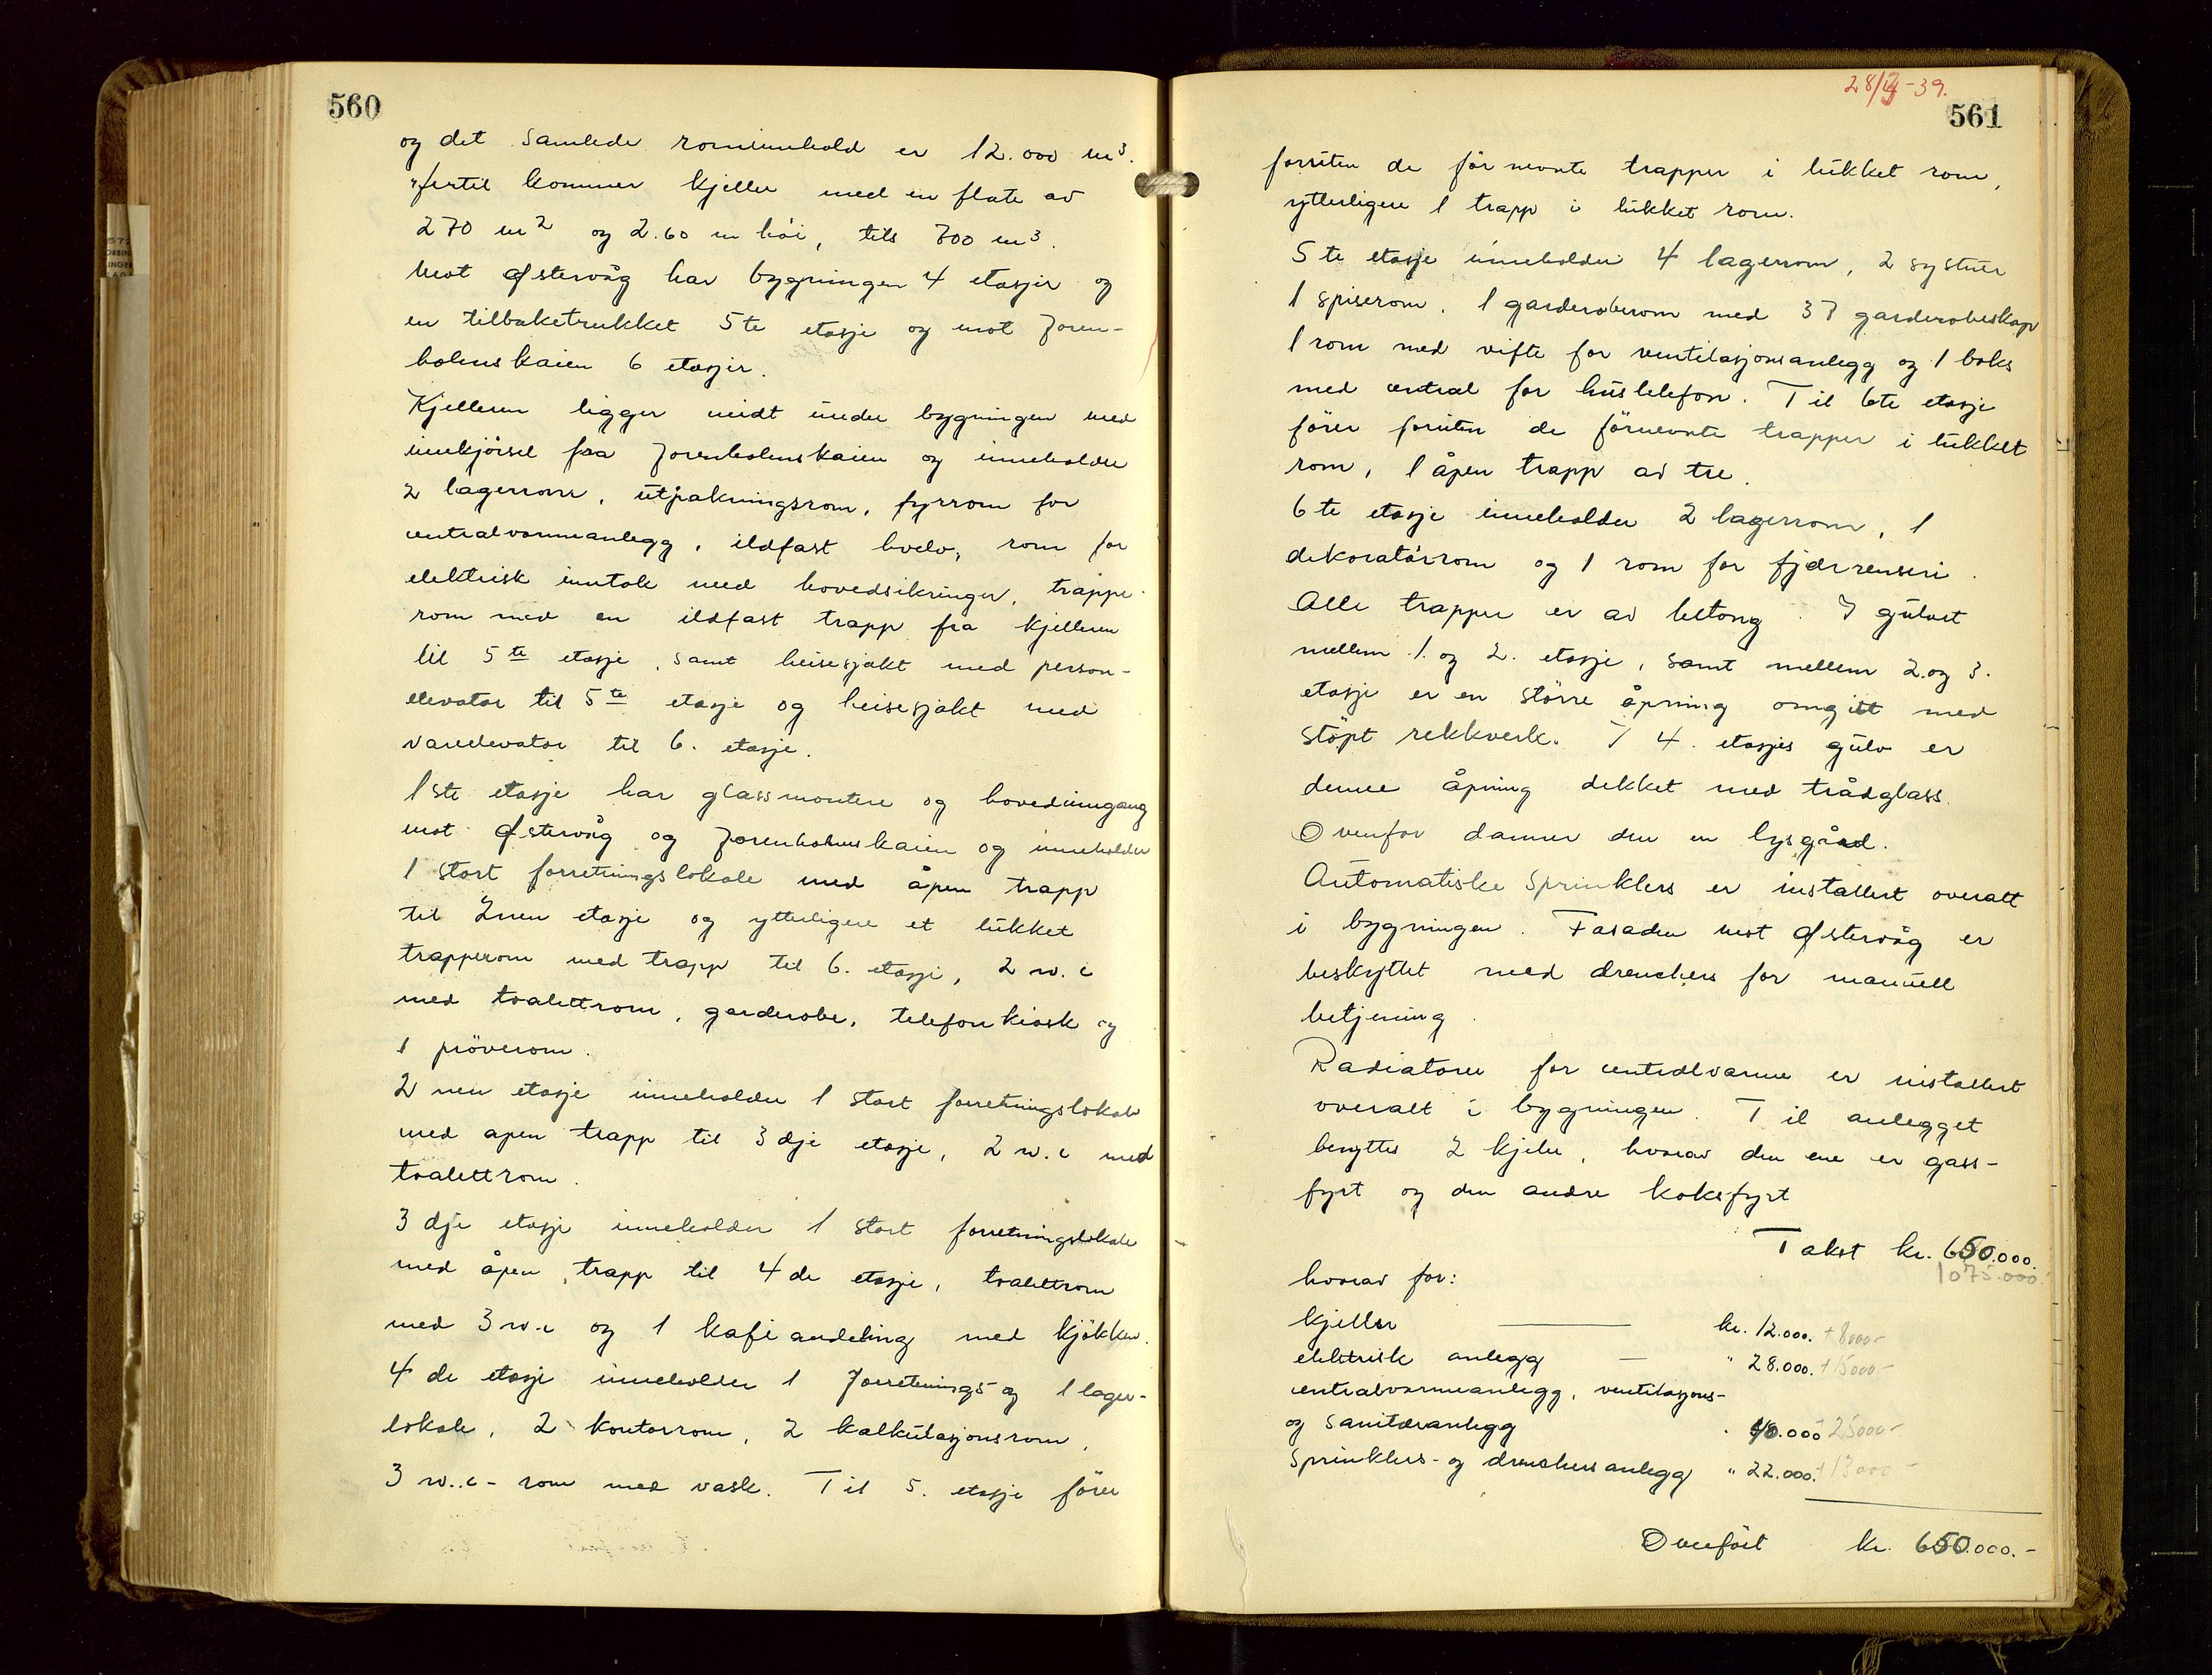 560
og det samlede rominnhold er 12.000 m³.
hertil kommer kjeller med en flate av
270 m² og 2.60 m höi, tils 700 m³.
Mot Østervåg har bygningen 4 etasjer og
en tilbaketrukket 5te etasje og mot Joren-
holmskaien 6 etasjer.
Kjelleren ligger midt under bygningen med
innkjörsel fra Jorenholmskaien og inneholder
2 lagerrom, utpakningsrom, fyrrom for
centralvarmeanlegg, ildfast hvelv, rom for
elektrisk inntak med hovedsikringer, trappe-
rom med en ildfast trapp fra kjelleren
til 5te etasje, samt heisesjakt med person-
elevator til 5te etasje og heisesjakt med
vareelevator til 6. etasje.
1ste etasje har glassmontere og hovedinngang
mot Østervåg og Jorenholmskaien og inneholder
1 stort forretningslokale med åpen trapp
til 2nen etasje og ytterligere et lukket
trapperom med trapp til 6. etasje, 2 w.c
med toalettrom, garderobe, telefonkiosk og
1 pröverom.
2nen etasje inneholder 1 stort forretningslokale
med apen trapp til 3dje etasje, 2 w.c med
toalettrom.
3dje etasje inneholder 1 stort forretningslokale
med åpen trapp til 4de etasje, toalettrom
med 3 w.c og 1 kafeavdeling med kjökken.
4de etasje inneholder 1 forretnings- og 1 lager-
lokale, 2 kontorrom, 2 kalkulasjonsrom,
3 w.c-rom med vask. Til 5. etasje förer
28/3-39.
561
foruten de för nevnte trapper i lukket rom,
ytterligere 1 trapp i lukket rom.
5te etasje inneholder 4 lagerrom, 2 systuer
1 spiserom, 1 garderoberom med 37 garderobeskap
1 rom med vifte for ventilasjonsanlegg og 1 boks
med central for hustelefon. Til 6te etasje
förer foruten de förnevnte trapper i lukket
rom, 1 åpen trapp av tre.
6te etasje inneholder 2 lagerrom, 1
dekoratörrom og 1 rom for fjærrenseri.
Alle trapper er av betong. I gulvet
mellem 1. og 2. etasje, samt mellem 2. og 3.
etasje er en större åpning omgitt med
stöpt rekkverk. I 4. etasjes gulv er
denne åpning dekket med trådglass.
Ovenfor danner den en lysgård.
Automatiske Sprinklers er installert overalt
i bygningen. Fasaden mot Østervåg er
beskyttet med drenchers for manuell
betjening.
Radiatorer for centralvarme er installert
overalt i bygningen. Til anlegget
benyttes 2 kjeler, hvorav den ene er gass-
fyrt og den andre koksfyrt
Takst kr. 650.000.
1075.000.
hvorav for:
kjeller kr. 12.000. + 8000-
elektrisk anlegg — " 28.000. + 15000-
centralvarmeanlegg, ventilasjons-
og sanitæranlegg " 40.000 25000-
Sprinklers- og drenchersanlegg " 22.000. + 13000-
Overfört kr. 650.000.-